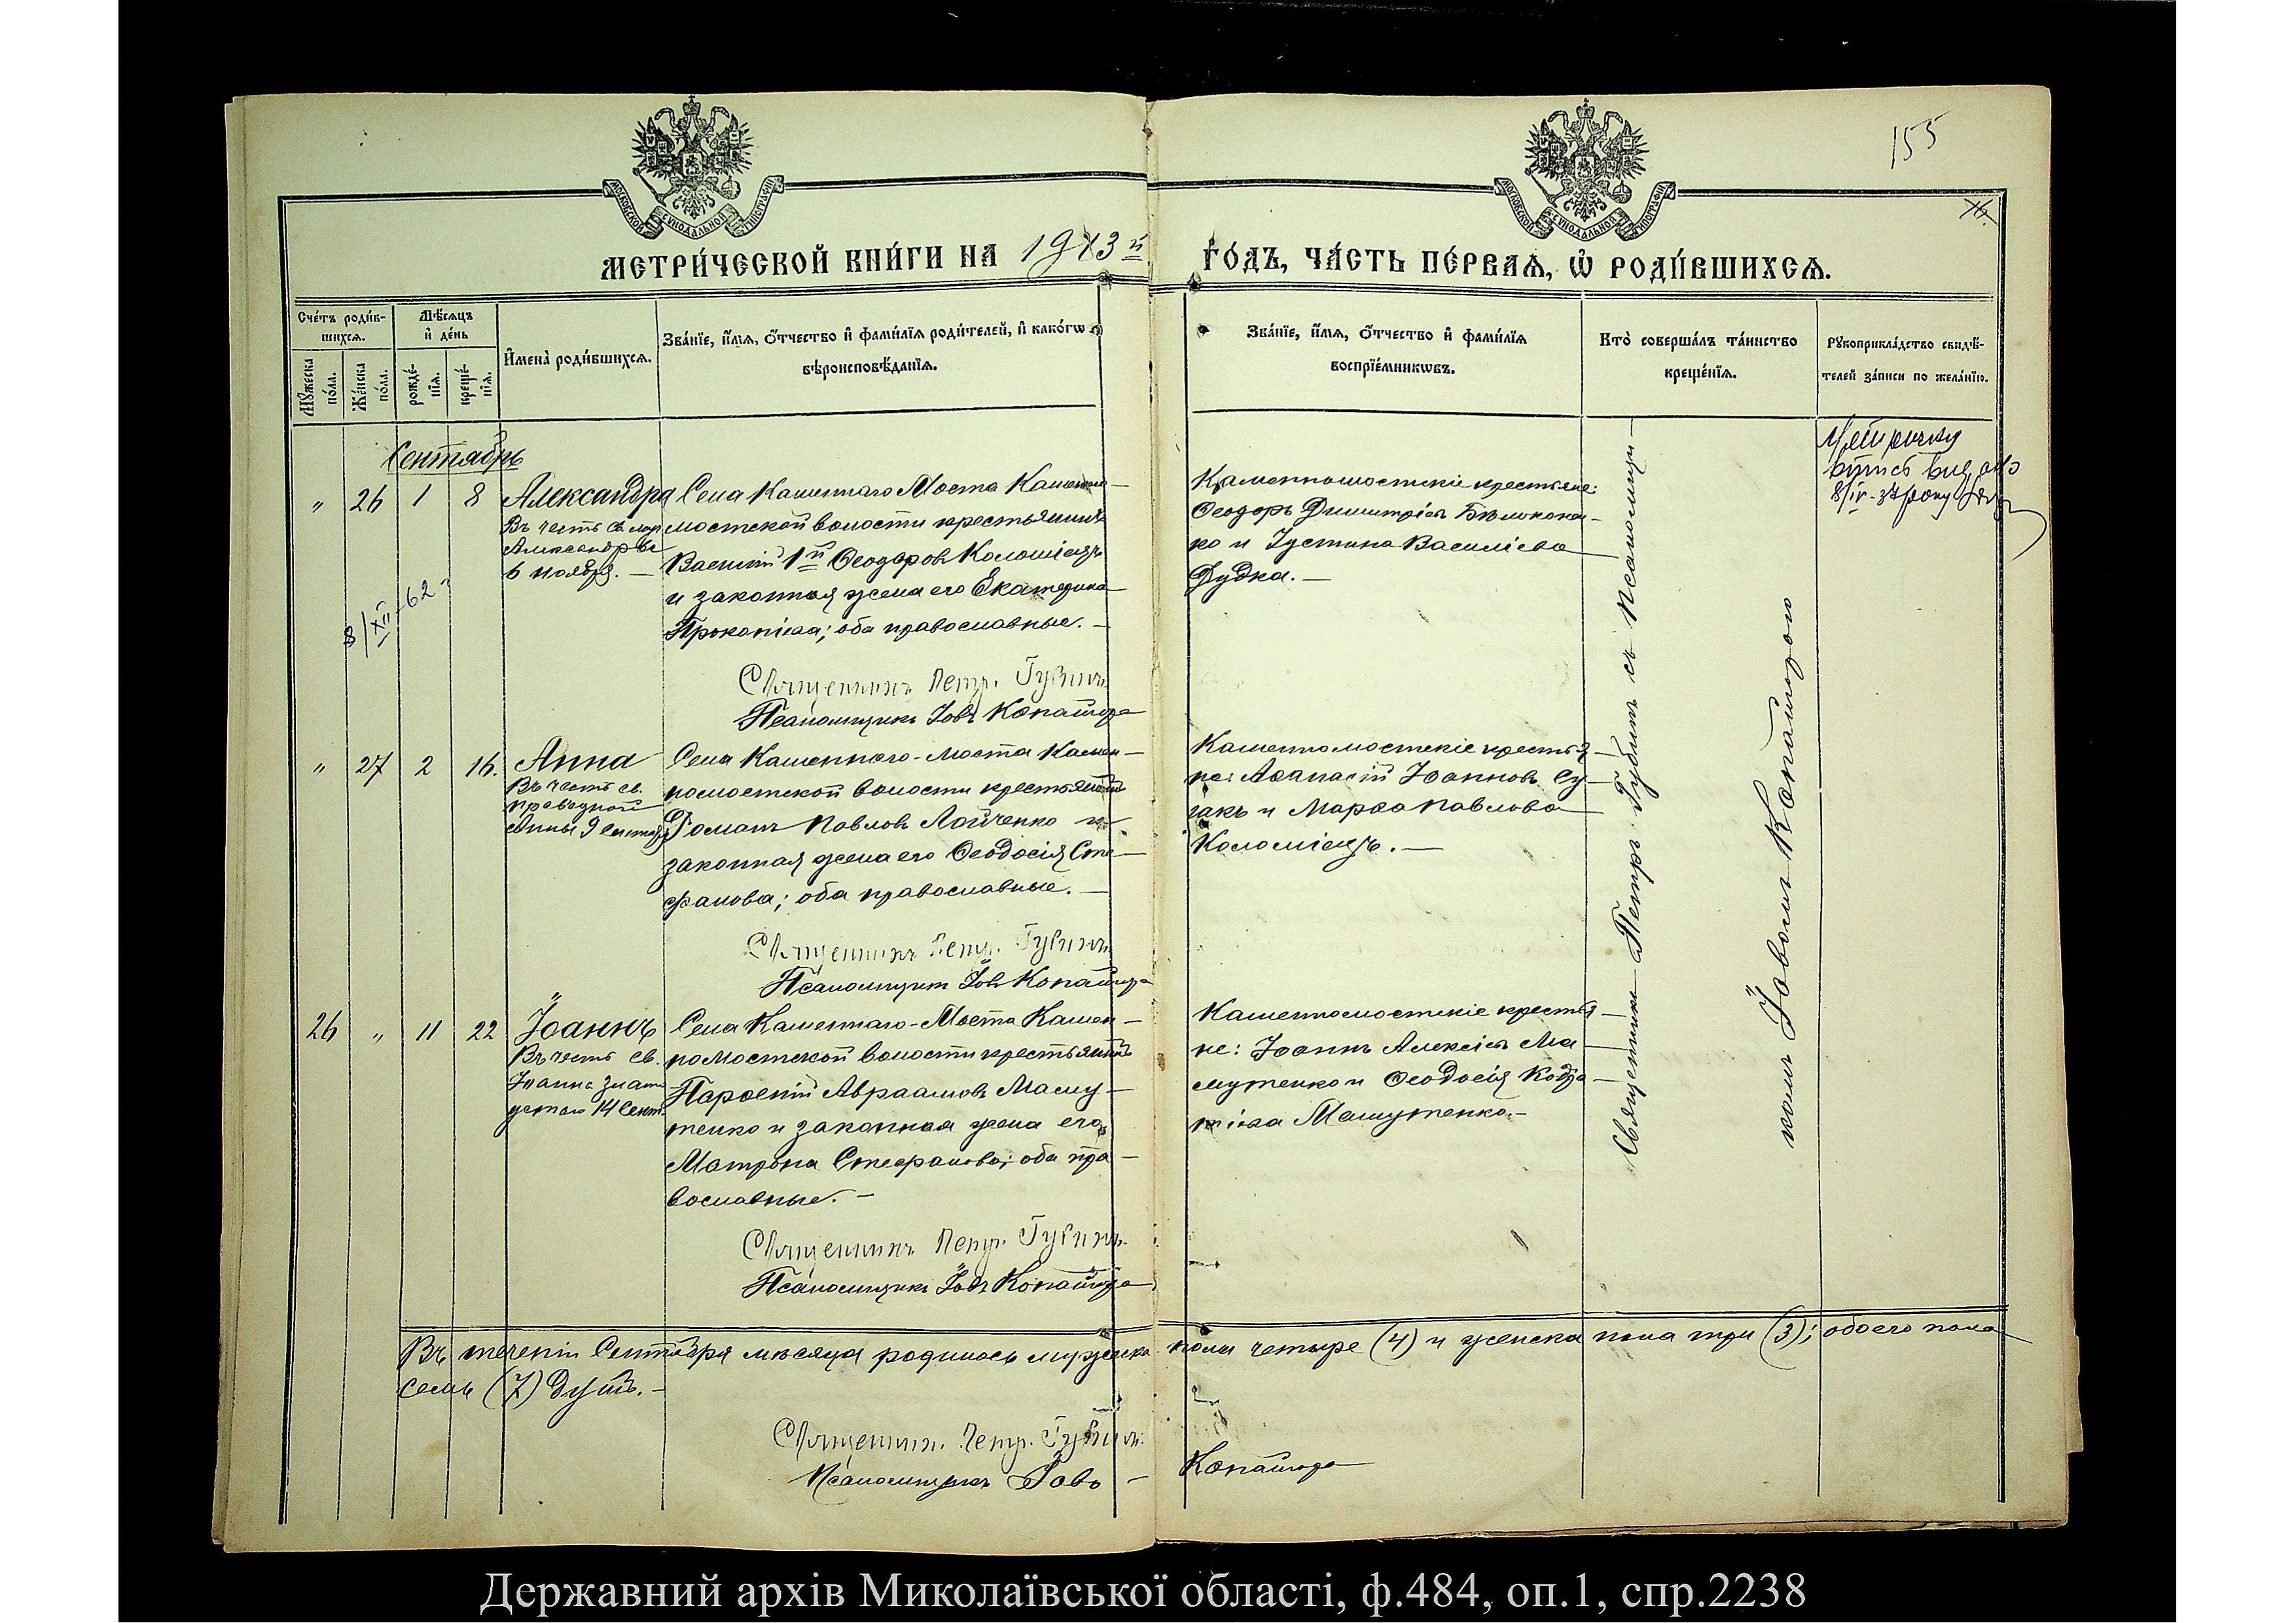 155
16.
МОСКОВСКОЙ СѴНОДАЛЬНОЙ ТИПОГРАФІИ
МОСКОВСКОЙ СѴНОДАЛЬНОЙ ТИПОГРАФІИ
МЕТРИ́ЧЕСКОЙ КНИ́ГИ НА 1913 й
ГО́ДЪ, ЧА́СТЬ ПЕ́РВАѦ, Ѡ҆ РОДИ́ВШИХСѦ.
Сче́тъ роди́в-
шихсѧ.
Мꙋ́жеска по́ла.
Же́нска по́ла.
Мѣ́сѧцъ
и҆ де́нь
рожде́-
нїѧ.
креще́-
нїѧ.
И҆мена̀ роди́вшихсѧ.
Зва́нїе, и҆́мѧ, ѻ҆́тчество и҆ фами́лїѧ роди́телей, и҆ како́гѡ
вѣроисповѣ́данїѧ.
Зва́нїе, и҆́мѧ, ѻ҆́тчество и҆ фами́лїѧ
воспрїе́мникѡвъ.
Кто̀ соверша́лъ та́инство
креще́нїѧ.
Рꙋкоприкла́дство свидѣ́-
телей за́писи по жела́нїю.
Сентябрь
" 26 1 8
Александра
Въ честь св. мар.
Александры
6 ноября. —
8/XII-62 г
Села Каменнаго Моста Каменно-
мостской волости крестьянинъ
Василій 1й Ѳеодоровъ Коломіецъ
и законная жена его Екатерина
Прокопіева; оба православные. —
Священникъ Петръ Губинъ
Псаломщикъ Іовъ Копайгора
Каменномостскіе крестьяне:
Ѳеодоръ Димитріевъ Бѣлокон-
ко и Іустина Василіева
Дудка. —
8/IV-37 року
" 27 2 16.
Анна
Въ честь св.
праведной
Анны 9 сентября
Села Каменнаго-Моста Камен-
номостской волости крестьянинъ
Романъ Павловъ Лойченко и
законная жена его Ѳеодосія Сте-
фанова; оба православные. —
Священникъ Петръ Губинъ
Псаломщикъ Іовъ Копайгора
Каменномостскіе крестья-
не: Аѳанасій Іоанновъ Су-
гакъ и Марѳа Павлова
Коломіецъ. —
26 " 11 22
Іоаннъ
Въ честь св.
Іоанна Злато-
устаго 14 Сент.
Села Каменнаго-Моста Камен-
номостской волости крестьянинъ
Парѳеній Авраамовъ Маму-
тенко и законная жена его
Матрона Стефанова; оба пра-
вославные. —
Священникъ Петръ Губинъ
Псаломщикъ Іовъ Копайгора
Каменномостскіе крестья-
не: Іоаннъ Алексіевъ Ма-
мутенко и Ѳеодосія Кодра-
тіева Мамутенко. —
Священникъ Петръ Губинъ съ Псаломщи-
комъ Іовомъ Копайгорою
Въ теченіи Сентября мѣсяца родилось мужеска пола четыре (4) и женска пола три (3); обоего пола
семь (7) душъ. —
Священник. Петр. Губинъ
Псаломщикъ Іовъ — Копайгора
Державний архів Миколаївської області, ф.484, оп.1, спр.2238